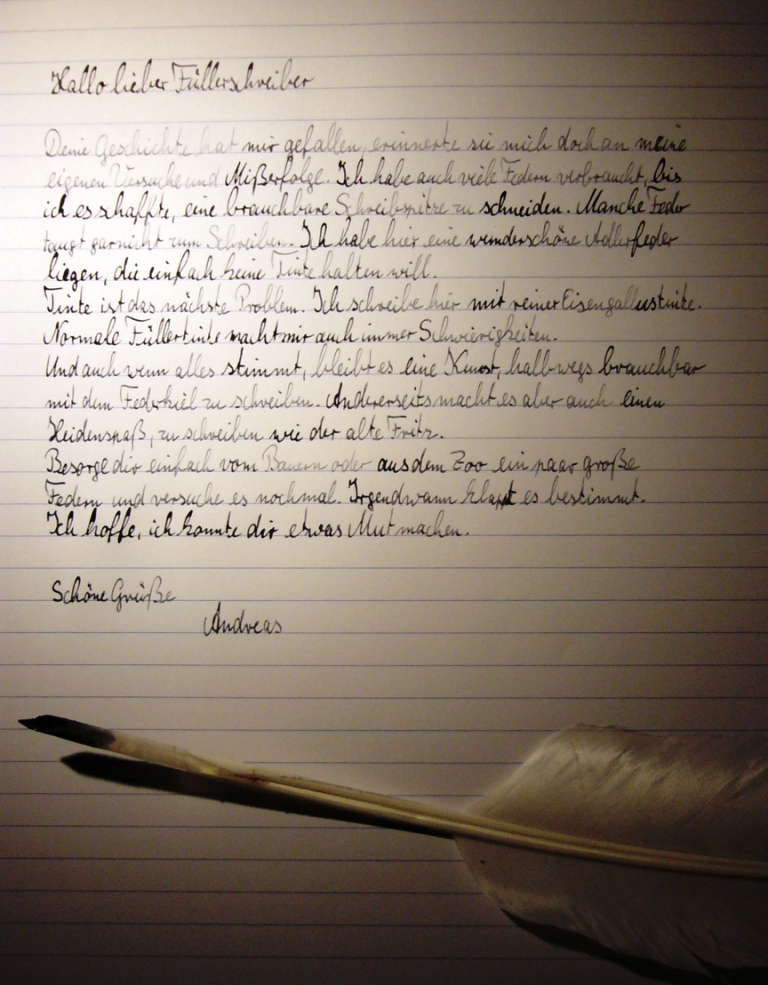 Hallo lieber Füllerschreiber
Deine Geschichte hat mir gefallen, erinnerte sie mich doch an meine
eigenen Versuche und Mißerfolge. Ich habe auch viele Federn verbraucht, bis
ich es schaffte, eine brauchbare Schreibspitze zu schneiden. Manche Feder
taugt garnicht zum Schreiben. Ich habe hier eine wunderschöne Adlerfeder
liegen, die einfach keine Tinte halten will.
Tinte ist das nächste Problem. Ich schreibe hier mit reiner Eisengallustinte.
Normale Füllertinte macht mir auch immer Schwierigkeiten.
Und auch wenn alles stimmt, bleibt es eine Kunst, halbwegs brauchbar
mit dem Federkiel zu schreiben. Andererseits macht es aber auch einen
Heidenspaß, zu schreiben wie der alte Fritz.
Besorge dir einfach vom Bauern oder aus dem Zoo ein paar große
Federn und versuche es nochmal. Irgendwann klappt es bestimmt.
Ich hoffe, ich konnte dir etwas Mut machen.
Schöne Grüße
Andreas